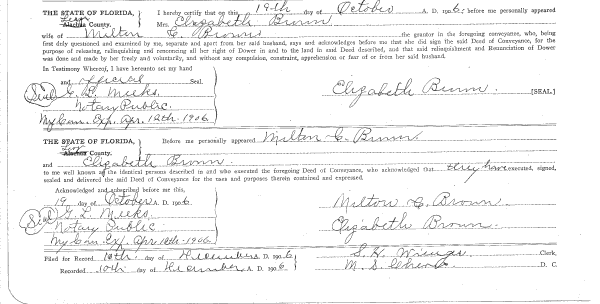 THE STATE OF FLORIDA, I hereby certify that on this 19th day of October A. D. 1906 before me personally appeared
Alachua County. Mrs. Elizabeth Brown
wife of Milton C. Brown the grantor in the foregoing conveyance, who, being
first duly questioned and examined by me, separate and apart from her said husband, says and acknowledges before me that she did sign the said Deed of Conveyance, for the
purpose of releasing, relinquishing and renouncing all her right of Dower in and to the land in said Deed described, and that said relinquishment and Renunciation of Dower
was done and made by her freely and voluntarily, and without any compulsion, constraint, apprehension or fear of or from her said husband.
In Testimony Whereof, I have hereunto set my hand
and official Seal.
(Seal) G. L. Meeks Elizabeth Brown [SEAL.]
Notary Public.
My Com. Exp. Apr. 12th 1906
THE STATE OF FLORIDA, Before me personally appeared Milton C. Brown
Alachua County.
and Elizabeth Brown.
to me well known as the identical persons described in and who executed the foregoing Deed of Conveyance, who acknowledged that they have executed, signed,
sealed and delivered the said Deed of Conveyance for the uses and purposes therein contained and expressed.
Acknowledged and subscribed before me this,
19 day of October A. D. 1906. Milton C. Brown.
(Seal) G. L. Meeks. Elizabeth Brown
Notary Public
My Com Exp. Apr 12th 1906
Filed for Record 10th day of December A. D. 1906 Clerk,
Recorded 10th day of December A. D. 1906 M. S. D. C.